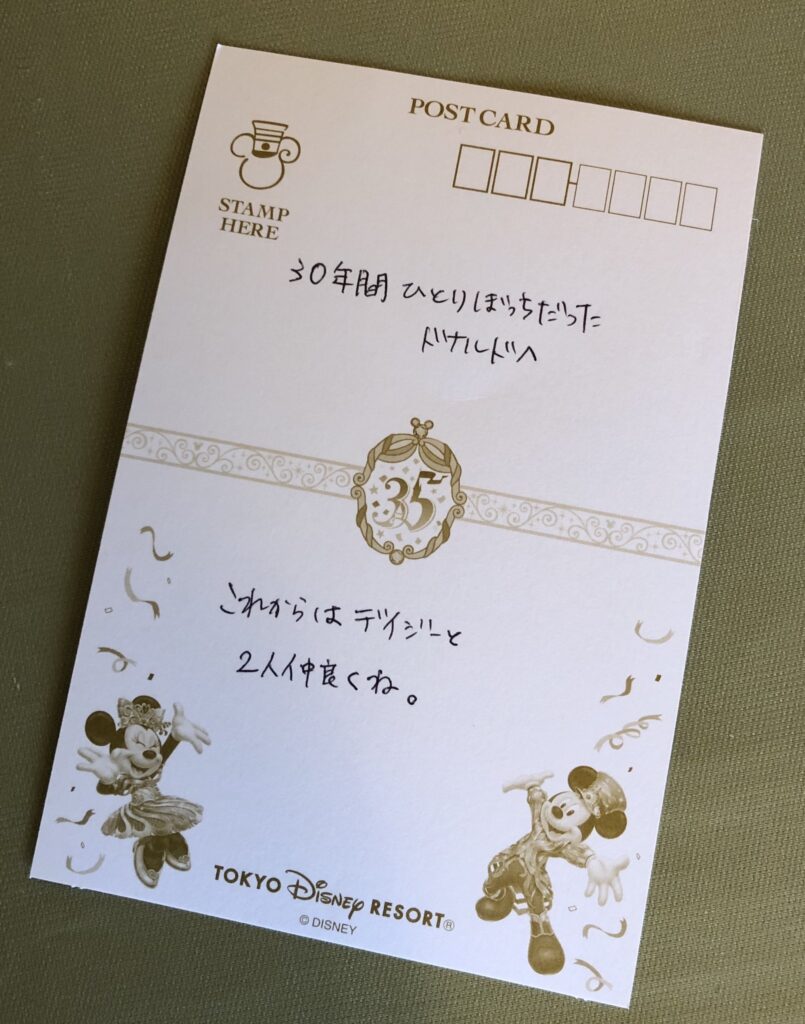 POST CARD
STAMP
HERE
30年間 ひとりぼっちだった
ドナルドへ
35
これからは デイジーと
2人仲良くね。
TOKYO Disney RESORT®
© DISNEY